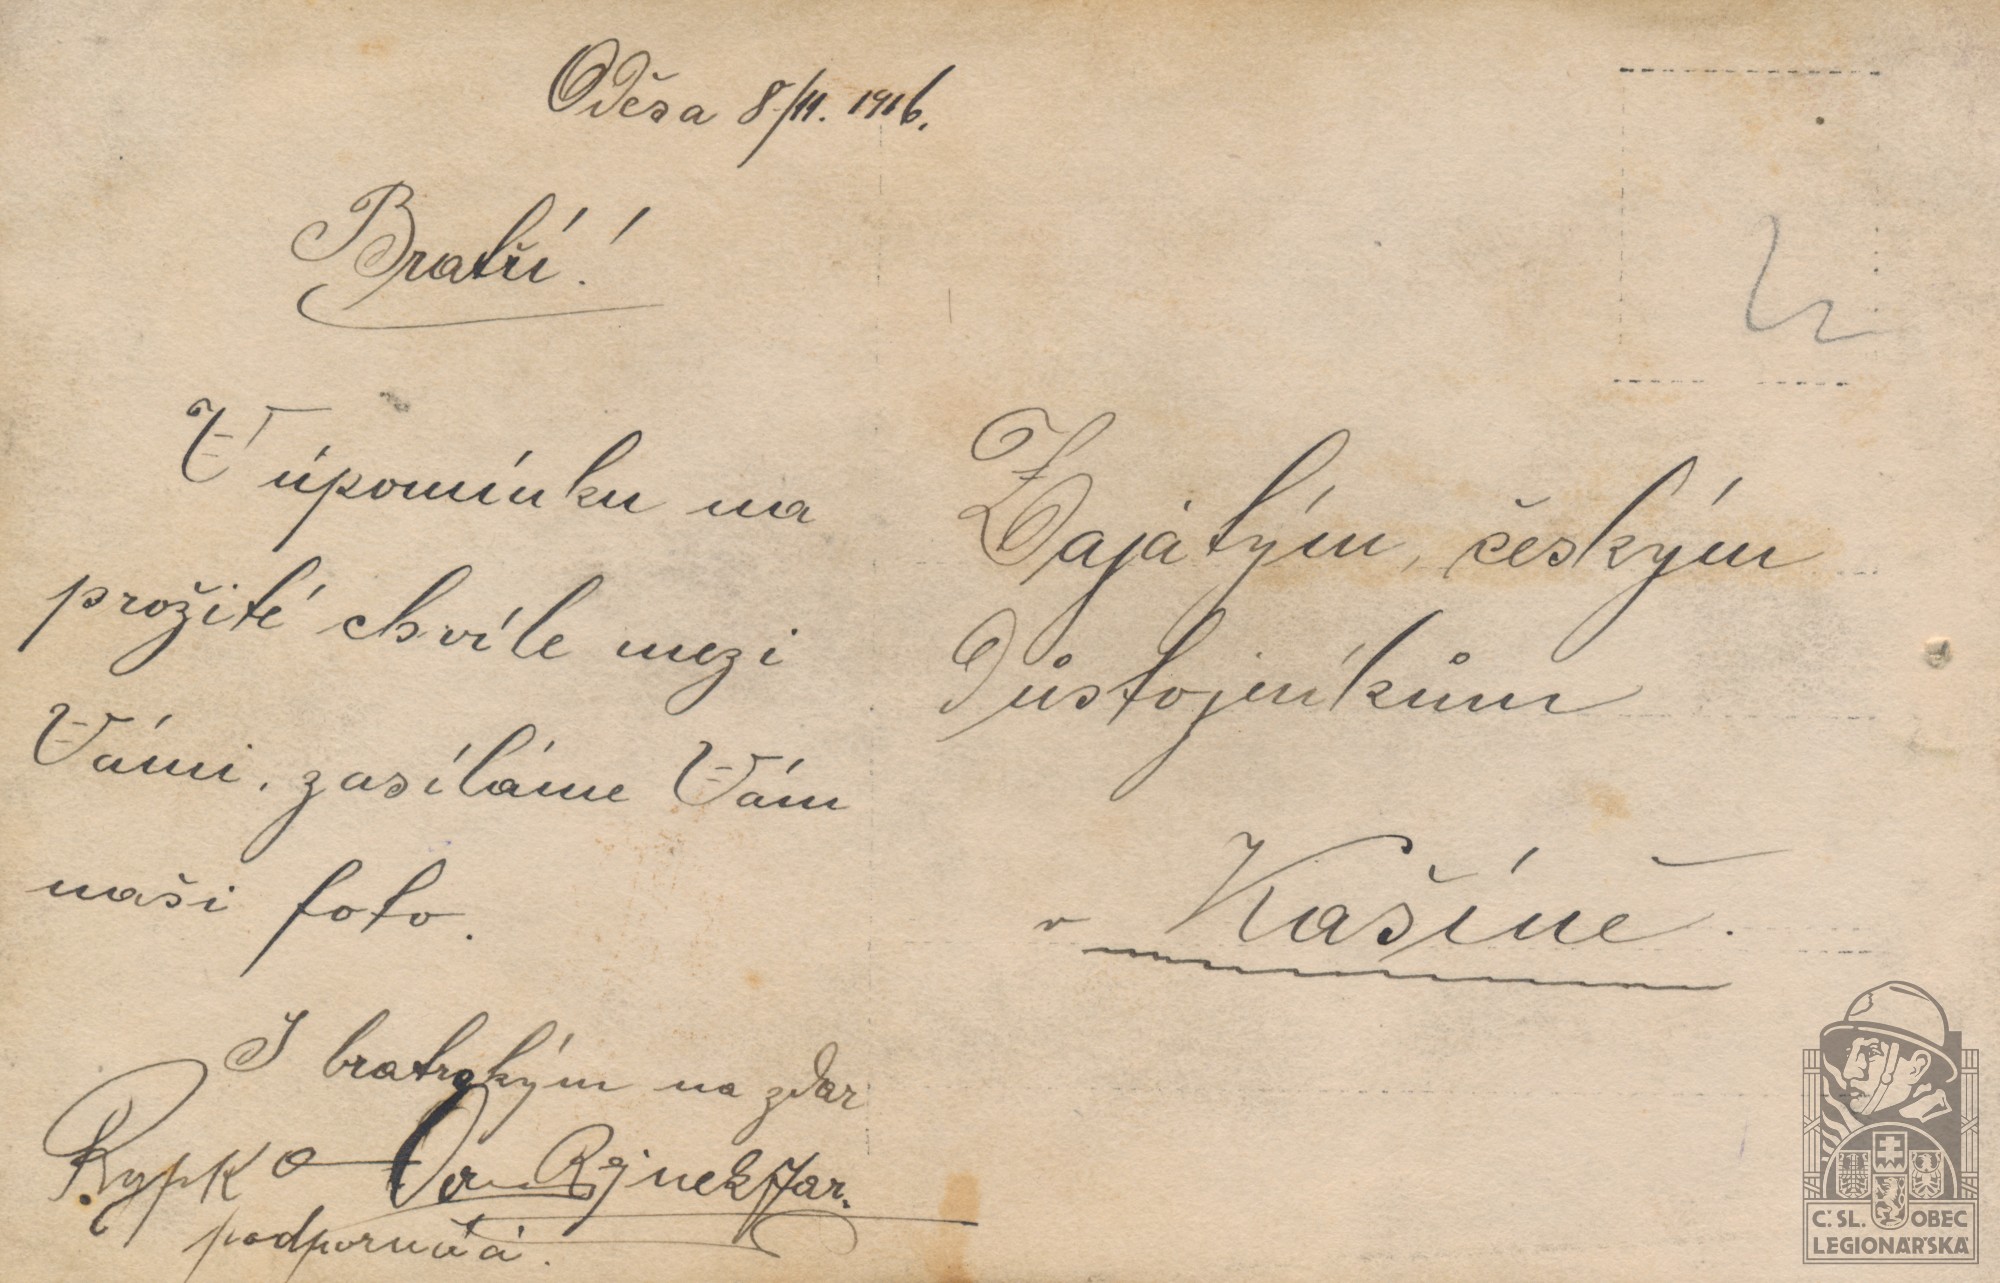 Oděsa 8/11. 1916.
Bratří!
V úpomínku na
prožité chvíle mezi
Vámi, zasíláme Vám
naši foto.
S bratrským na zdar
Rypk
Rejnek Jar.
podporučí.
Zajatým, českým
důstojníkům
v Kašíně.
Č.SL. OBEC
LEGIONÁŘSKÁ